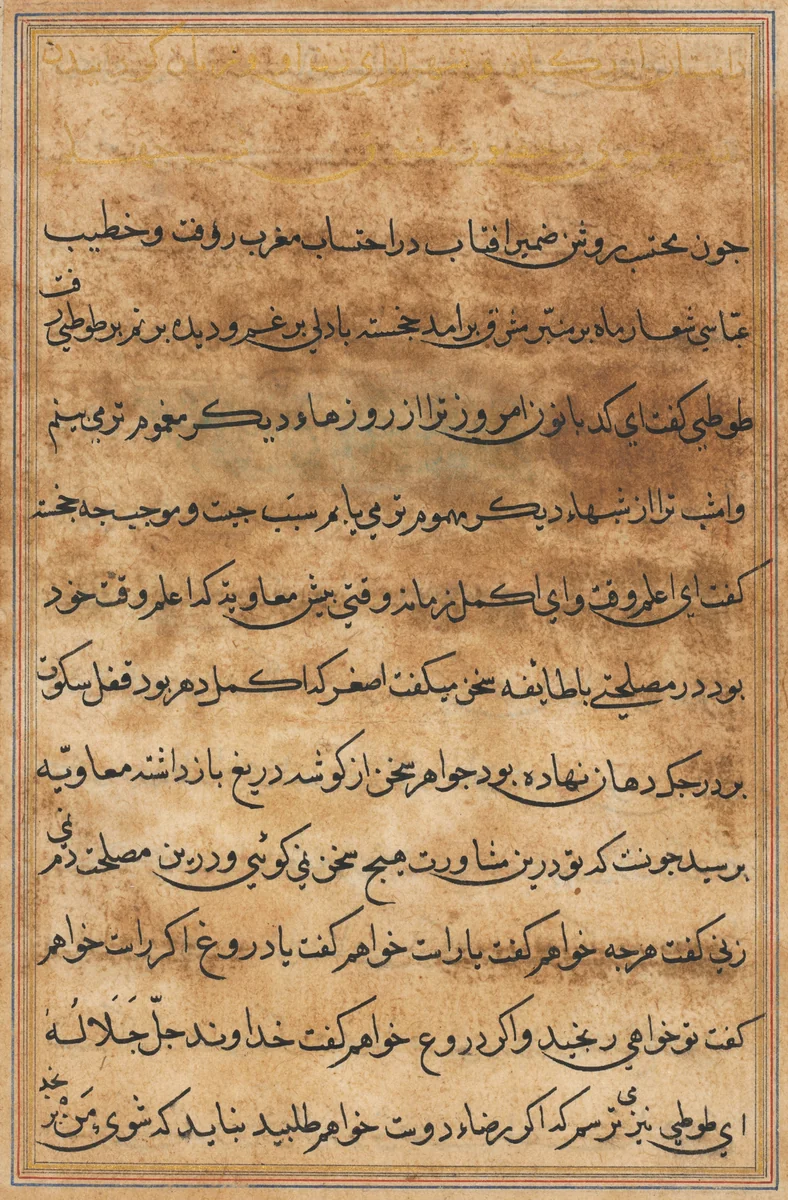 جون محتسب روشن ضمیر افتاب در احتساب مغرب رفت و خطیب
عبّاسي شعار ماه بر منبر مشرق برامد خجسته با دلي بر غم و دیده بر نم بر طوطي رفت
طوطي کفت اي کدبانون امروز ترا از روزهاء دیکر مغموم تر می بینم
وامشب ترا از شبهاء دیکر مهموم تر می یابم سبب جیست و موجب جه خجسته
کفت اي اعلم وقت و اي اکمل زمانه وقتی بیش معاویه که اعلم وقت خود
بود در مصلحتي با طائفه سخن میکفت اصغر که اکمل دهر بود قفل سکوت
بر درجک دهان نهاده بود جواهر سخن از کوشه دریغ باز داشته معاویّه
برسید جونست که تو درین مشاورت هیج سخن نی کوئي و درین مصلحت دم نی
زني کفت هرجه خواهم کفت یا راست خواهم کفت یا دروغ اکر راست خواهم
کفت تو خواهي رنجید و اکر دروغ خواهم کفت خداوند جلّ جَلَالُهُ
اي طوطي نیز می ترسم که اکر رضاء دوست خواهم طلبید بناید که شوی مَن برنجد